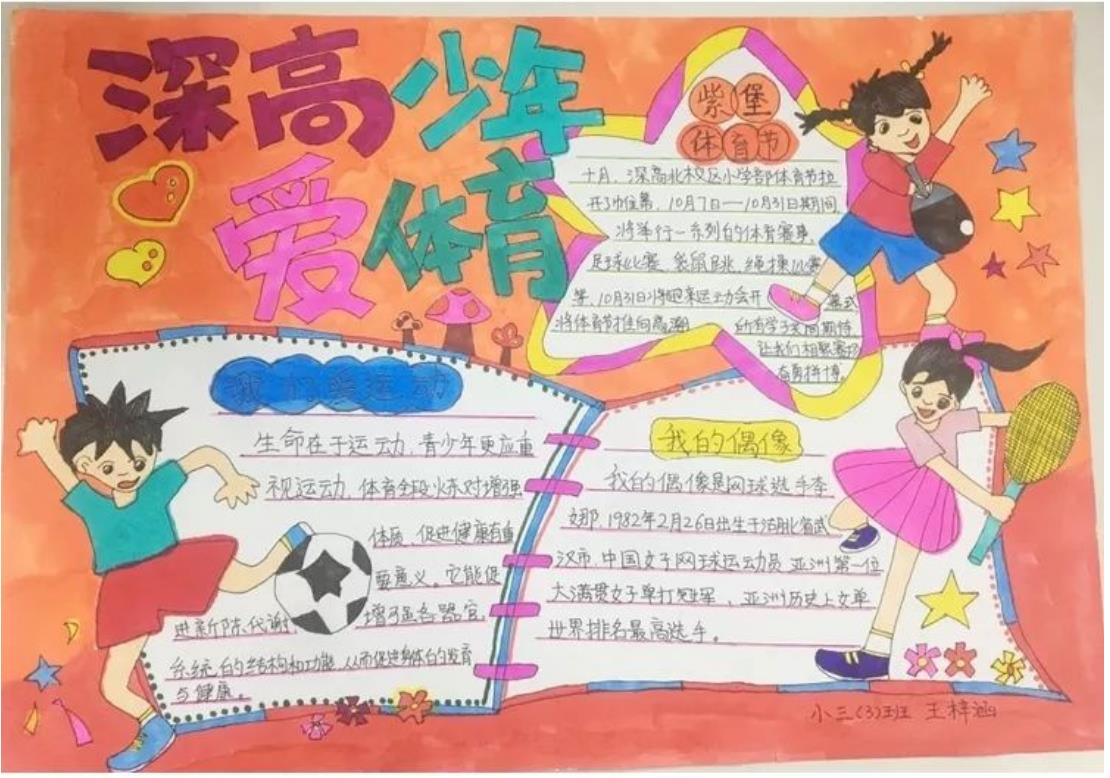 深高少年
爱体育
紫堡
体育节
十月,深高北校区小学部体育节拉
开了帷幕,10月7日——10月31日期间,
将举行一系列的体育赛事,
足球比赛、袋鼠跳、绳操比赛
等,10月31日将迎来运动会开幕式
将体育节推向高潮 所有学子共同期待
让我们相聚赛场
奋勇拼博。
我们爱运动
生命在于运动,青少年更应重
视运动,体育全段火东对增强
体质、促进健康有重
要意义。它能促
进新陈代谢 增强各器官
系统的结构和功能,从而促进身体的发育
与健康。
我的偶像
我的偶像是网球选手李
娜,1982年2月26日出生于湖北省武
汉市,中国女子网球运动员,亚洲第一位
大满贯女子单打冠军、亚洲历史上女单
世界排名最高选手。
小三(3)班 王梓涵